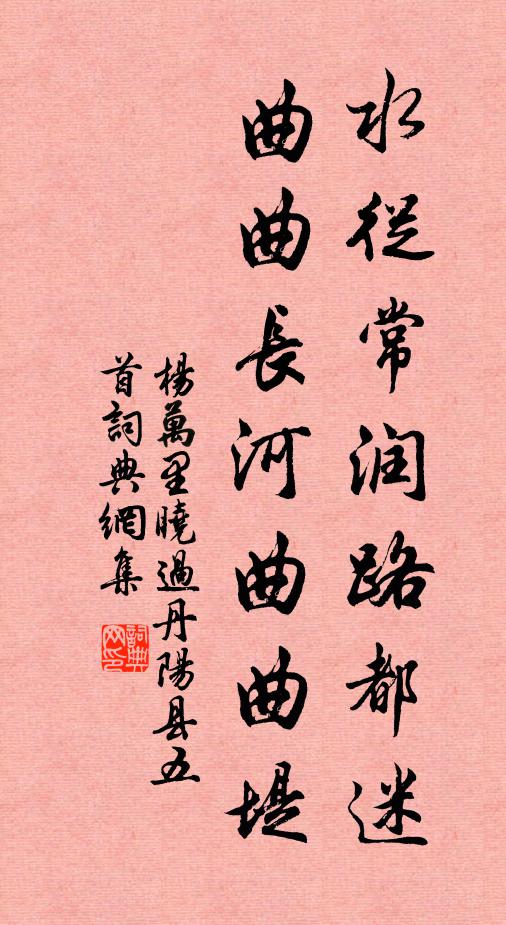 水從常润路都迷
曲曲長河曲曲堤
楊萬里曉過丹陽县五
首詞典網集
詞典网印